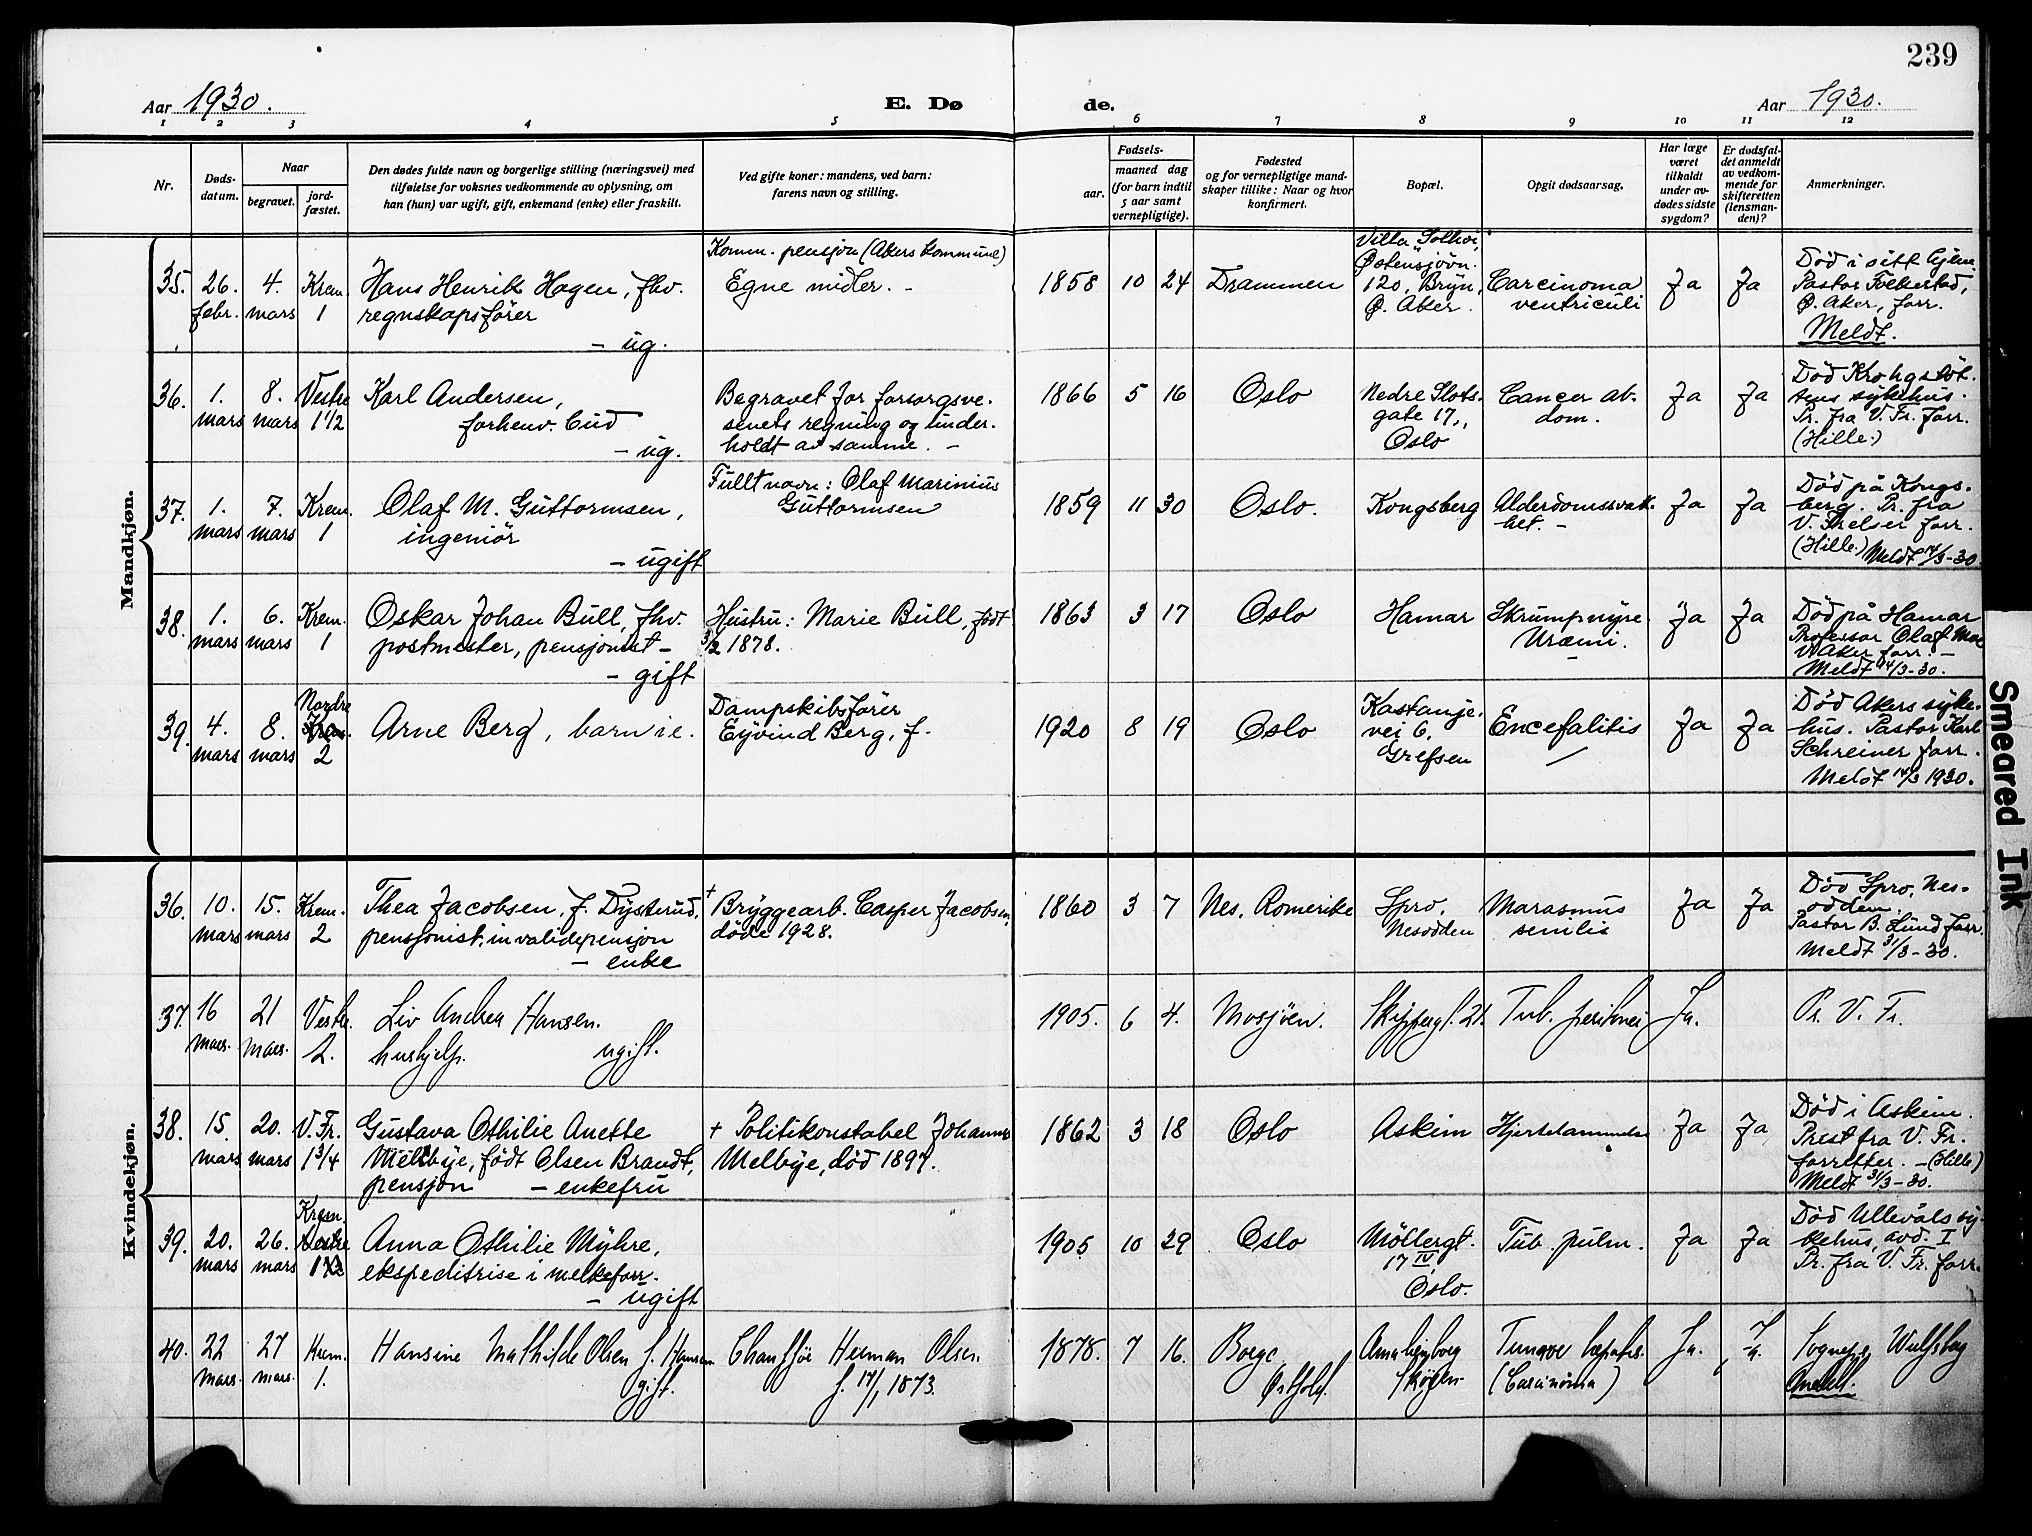 239
Aar 1930.
E. Dø
de.
Aar 1930.
1 2 3 4 5 6 7 8 9 10 11 12
Nr.
Døds-
datum.
Naar
begravet.
jord-
fæstet.
Den dødes fulde navn og borgerlige stilling (næringsvei) med
tilføielse for voksnes vedkommende av oplysning, om
han (hun) var ugift, gift, enkemand (enke) eller fraskilt.
Ved gifte koner: mandens, ved barn:
farens navn og stilling.
Fødsels-
aar.
maaned dag
(for barn indtil
5 aar samt
vernepligtige).
Fødested
og for vernepligtige mand-
skaper tillike: Naar og hvor
konfirmert.
Bopæl.
Opgit dødsaarsag.
Har læge
været
tilkaldt
under av-
dødes sidste
sygdom?
Er dødsfal-
det anmeldt
av vedkom-
mende for
skifteretten
(lensman-
den)?
Anmerkninger.
Mandkjøn.
35.
26.
febr.
4.
mars
Krem.
1
Hans Henrik Hagen, fhv.
regnskapsfører
- ug.
Komm. pensjon (Akers kommune)
Egne midler. -
1858 10 24
Drammen
Villa "Solhoi,"
Østensjøvn.
120, Bryn,
Ø. Aker.
Carcinoma
ventriculi
Ja
Ja
Død i sitt hjem
Pastor Folkestad,
Ø. Aker, forr.
Meldt.
36.
1.
mars
8.
mars
Vestre
1 1/2
Karl Andersen,
forhenv. bud
- ug.
Begravet for forsorgsve-
senets regning og under-
holdt av samme. -
1866 5 16
Oslo
Nedre Slots-
gate 17,
Oslo
Cancer ab-
dom.
Ja
Ja
Død Krohgstöt-
tens sykehus.
Pr. fra V. Fr. forr.
(Hille.)
37.
1.
mars
7.
mars
Krem.
1
Olaf M. Guttormsen,
ingeniör
- ugift
Fullt navn: Olaf Marinius
Guttormsen
1859 11 30
Oslo.
Kongsberg
Alderdomssvak-
het. -
Ja
Ja
Død på Kongs-
berg. Pr. fra
V. Frelser forr.
(Hille.) Meldt 14/3-30.
38.
1.
mars
6.
mars
Krem.
1
Oskar Johan Bull, fhv.
postmester, pensjonist -
- gift
Hustru: Marie Bull, født
3/2 1878.
1863 3 17
Oslo
Hamar
Skrumpnyre
Uræmi.
Ja
Ja
Død på Hamar
Professor Olaf Moe
V. Aker forr. -
Meldt 14/3-30.
39.
4.
mars
8.
mars
Nordre
Krem.
2
Arne Berg, barn ie.
Dampskibsfører
Eyvind Berg, f.
1920 8 19
Oslo
Kastanje-
vei 6,
Grefsen
Encefalitis
Ja
Ja
Død Akers syke-
hus. Pastor Karl
Schreiner forr.
Meldt 14/3 1930.
Kvindekjøn.
36.
10.
mars
15.
mars
Krem.
2
Thea Jacobsen, f. Dysterud,
pensjonist, invalidepensjon
- enke
+ Bryggearb. Casper Jacobsen,
døde 1928.
1860 3 7
Nes, Romerike
Spro,
Nesodden
Marasmus
senilis
Ja
Ja
Død Spro, Nes-
odden.
Pastor B. Lund forr.
Meldt 31/3-30.
37.
16
mars.
21
mars.
Vestre.
2.
Liv Andrea Hansen.
hushjelp.
ugift.
1905. 6 4.
Mosjöen.
Skippergt. 21.
Tub. peritonei
Ja.
Pr. V. Fr.
38.
15.
mars
20.
mars
V. Fr.
1 3/4
Gustava Othilie Anette
Melbye, født Olsen Brandt,
pensjon - enkefru
+ Politikonstabel Johannes
Melbye, död 1897.
1862 3 18
Oslo
Askim
Hjertelammelse
Ja
Ja
Død i Askim.
Prest fra V. Fr.
forretter. - (Hille)
Meldt 31/3-30.
39.
20.
mars
26.
mars
Krem.
Vestre
1
Anna Othilie Myhre,
ekspeditrise i melkeforr.
- ugift
1905 10 29
Oslo
Möllergt.
17 IV
Oslo.
Tub. pulm.
Ja
Ja
Død Ullevåls sy-
kehus, avd. I
Pr. fra V. Fr. forr.
40.
22
mars.
27
mars.
Krem.
1.
Hansine Mathilde Olsen f. Hansen
gift.
Chauffør Herman Olsen
f. 17/1 1873.
1878. 7 16.
Borge,
Østfold.
Anna
Skøyen
Tumor hepatis.
(Carcinoma)
Ja.
Ja.
Sognepr. Wulfsberg
Meldt.
Smeared Ink